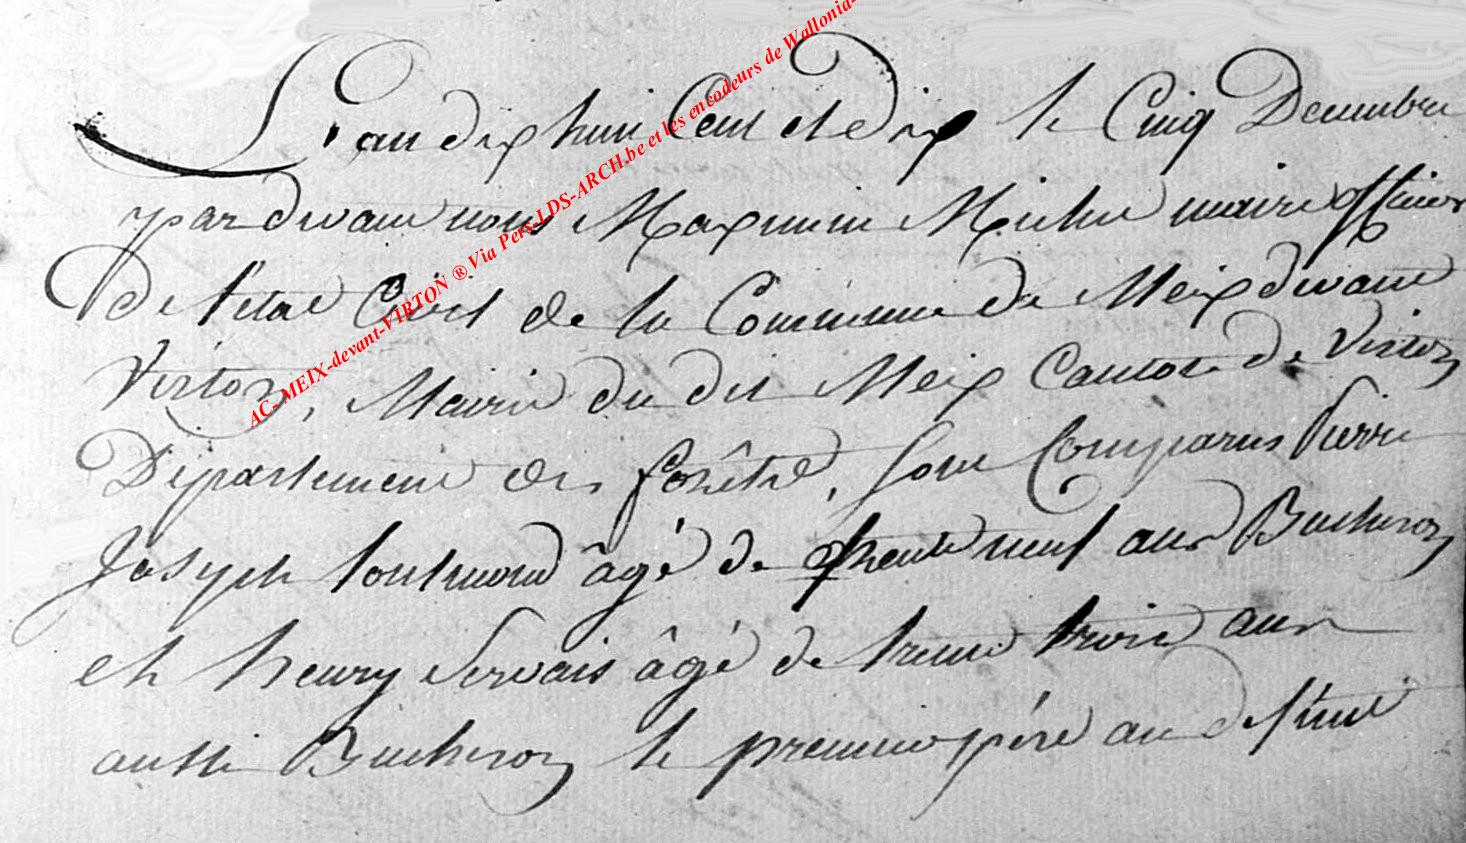 L'an dix huit Cent et dix le Cinq Decembre
par devant nous Maximin Michel maire officier
de l'etat Civil de la Commune de Meix devant
Virton, Mairie du dit Meix Canton de Virton
Département des forêtes, sont Comparus Pierre
Joseph âgé de trente neuf ans Bucheron
et henry Servais âgé de trente trois ans
aussi Bucheron le premier père au defunt
AC- MEIX-devant-VIRTON ® Via Pers-LDS-ARCH.be et les encodeurs de Wallonia-